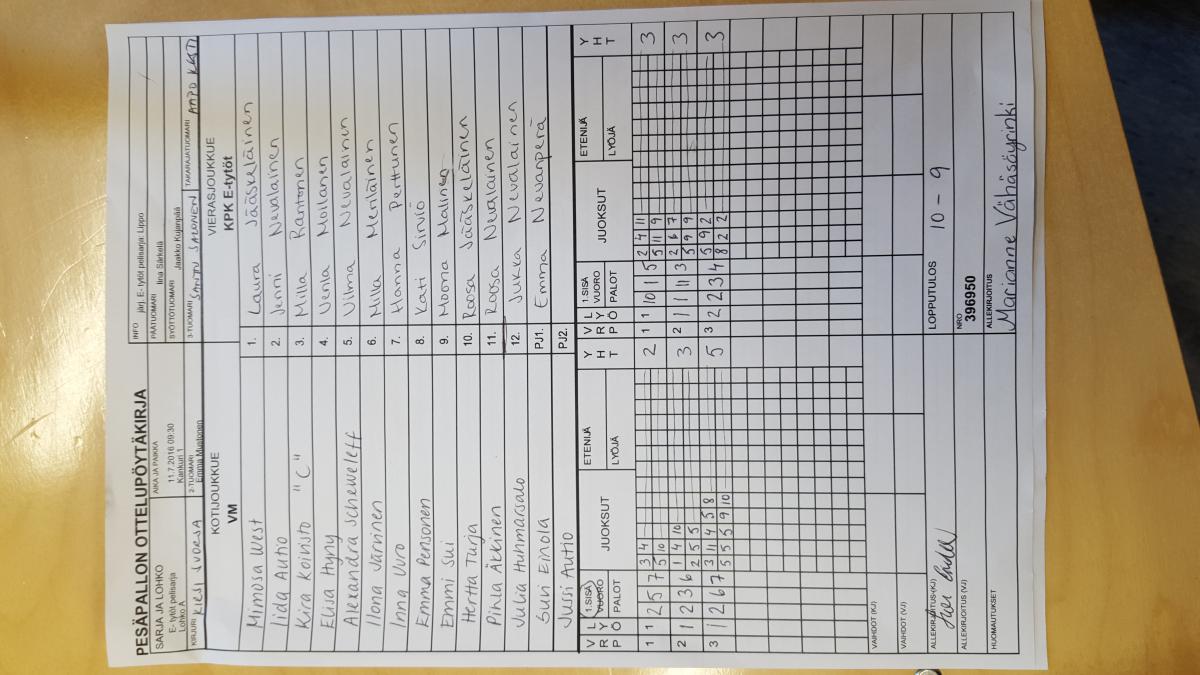 PESÄPALLON OTTELUPÖYTÄKIRJA
INFO järj. E- tytöt pelisarja: Lippo
SARJA JA LOHKO
E- tytöt pelisarja
Lohko A
AIKA JA PAIKKA
11.7.2016 09:30
Kankuri 1
PÄÄTUOMARI Iina Särkelä
SYÖTTÖTUOMARI Jaakko Kujanpää
KIRJURI KIESI
2-TUOMARI
Emma Mustonen
3-TUOMARI SANTTU SALONEN
TAKARAJATUOMARI
KOTIJOUKKUE
VM
VIERASJOUKKUE
KPK E-tytöt
Mimosa West 1. Laura Jääskeläinen
Iida Autio 2. Jenni Nevalainen
Kira Koivisto "C" 3. Milla Rantonen
Elisa Hyny 4. Venla Moilanen
Alexandra Scheweleff 5. Vilma Nevalainen
Ilona Järvinen 6. Milla Meriläinen
Inna Uuro 7. Hanna Perttunen
Emma Pensonen 8. Kati Sirviö
Emmi Sui 9. Moona Malinen
Hertta Turja 10. Roosa Jääskeläinen
Pihla Äkkinen 11. Roosa Nevalainen
Julia Huhmarsalo 12. Jukka Nevalainen
Suvi Einola PJ1. Emma Nevanperä
Jussi Autio PJ2.
V R P L Y Ö 1.SISÄ VUORO PALOT JUOKSUT ETENIJÄ LYÖJÄ Y H T V R P L Y Ö 1.SISÄ VUORO PALOT JUOKSUT ETENIJÄ LYÖJÄ Y H T
1 1 2 5 7 3 4 2 1 1 10 1 5 2 4 11 3
5 10 5 11 9
2 1 2 3 6 1 4 10 3 2 1 1 11 3 2 6 7 3
2 5 5 5 9 9
3 1 2 6 7 3 11 4 5 8 5 3 2 2 3 4 5 9 2 3
5 5 5 9 10 8 2 2
VAIHDOT (KJ)
VAIHDOT (VJ)
ALLEKIRJOITUS (KJ)
LOPPUTULOS 10 - 9
ALLEKIRJOITUS (VJ)
NRO
396950
HUOMAUTUKSET
ALLEKIRJOITUS
Marianne Vähäsöyrinki